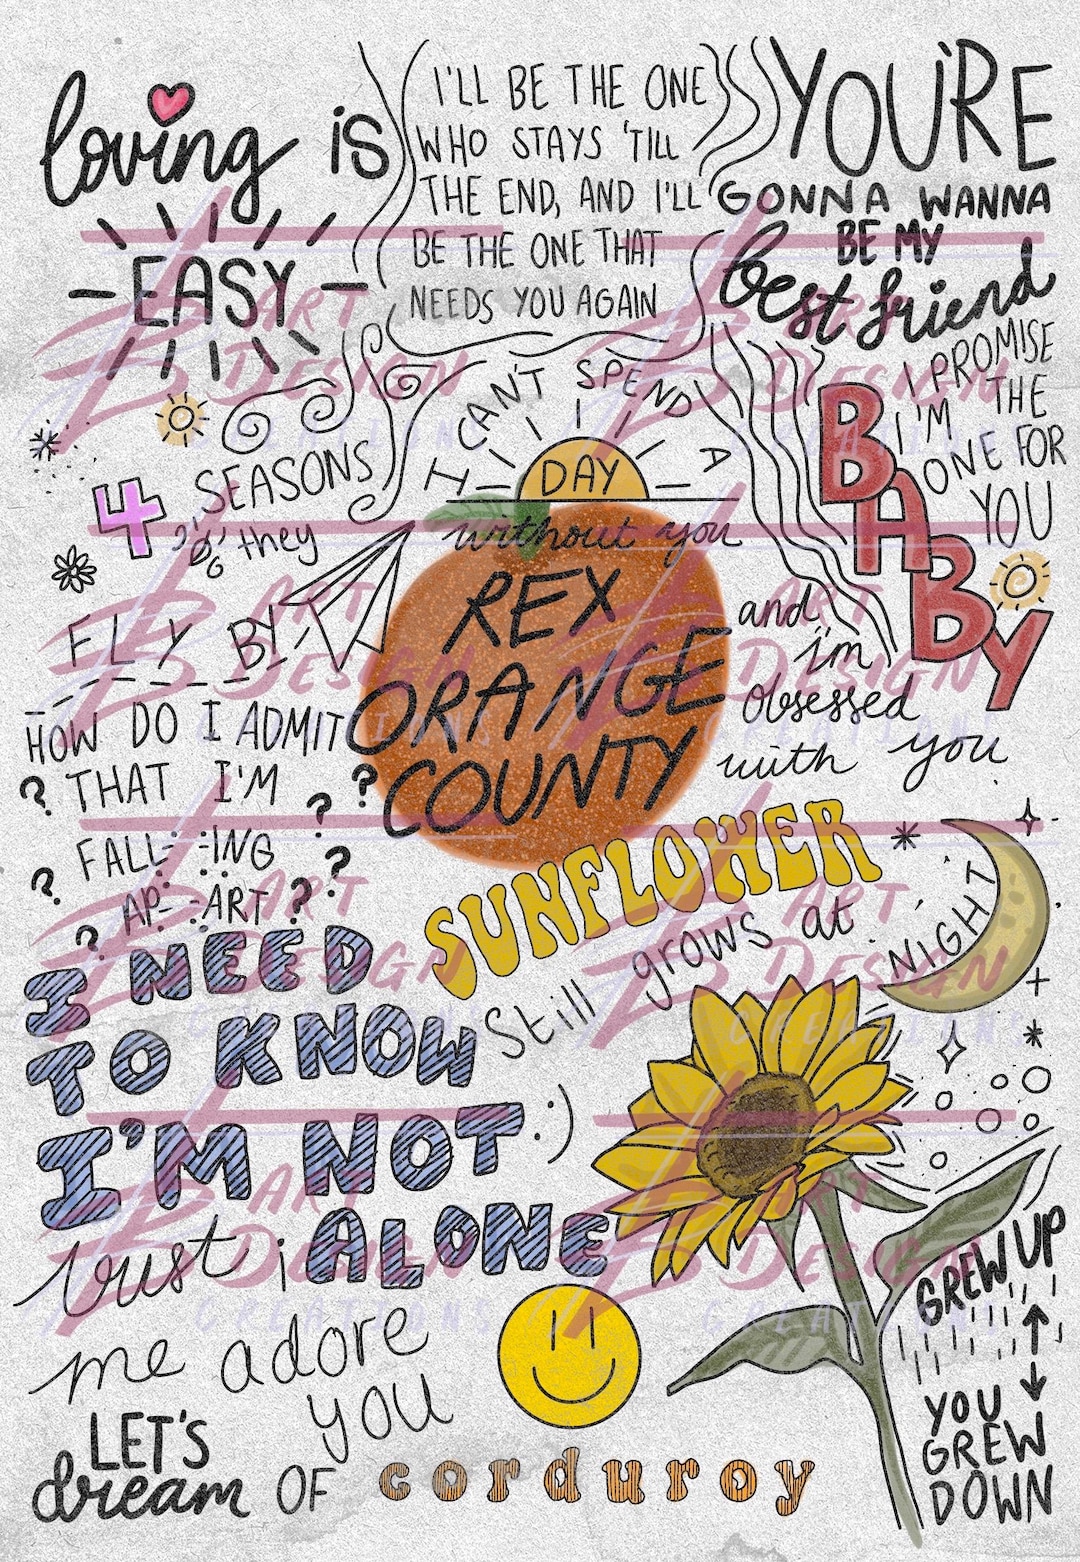 loving is
EASY
I'LL BE THE ONE
WHO STAYS 'TILL
THE END, AND I'LL
BE THE ONE THAT
NEEDS YOU AGAIN
YOU'RE
GONNA WANNA
BE MY
best friend
BABY
I PROMISE
I'M THE
ONE FOR
YOU
I CAN'T SPEND A
DAY
without you
4 SEASONS
& they
FLY BY
REX
ORANGE
COUNTY
and
i'm
obsessed
with you
HOW DO I ADMIT
THAT I'M
FALL-ING
AP-ART
SUNFLOWER
Still grows at
NIGHT
I NEED
TO KNOW
I'M NOT
ALONE
:)
trust i
me adore
you
GREW UP
YOU
GREW
DOWN
LET'S
dream OF
corduroy
B ART
DESIGN
CREATIONS
B ART
DESIGN
CREATIONS
B ART
DESIGN
CREATIONS
B ART
DESIGN
CREATIONS
B ART
DESIGN
CREATIONS
B ART
DESIGN
CREATIONS
B ART
DESIGN
CREATIONS
B ART
DESIGN
CREATIONS